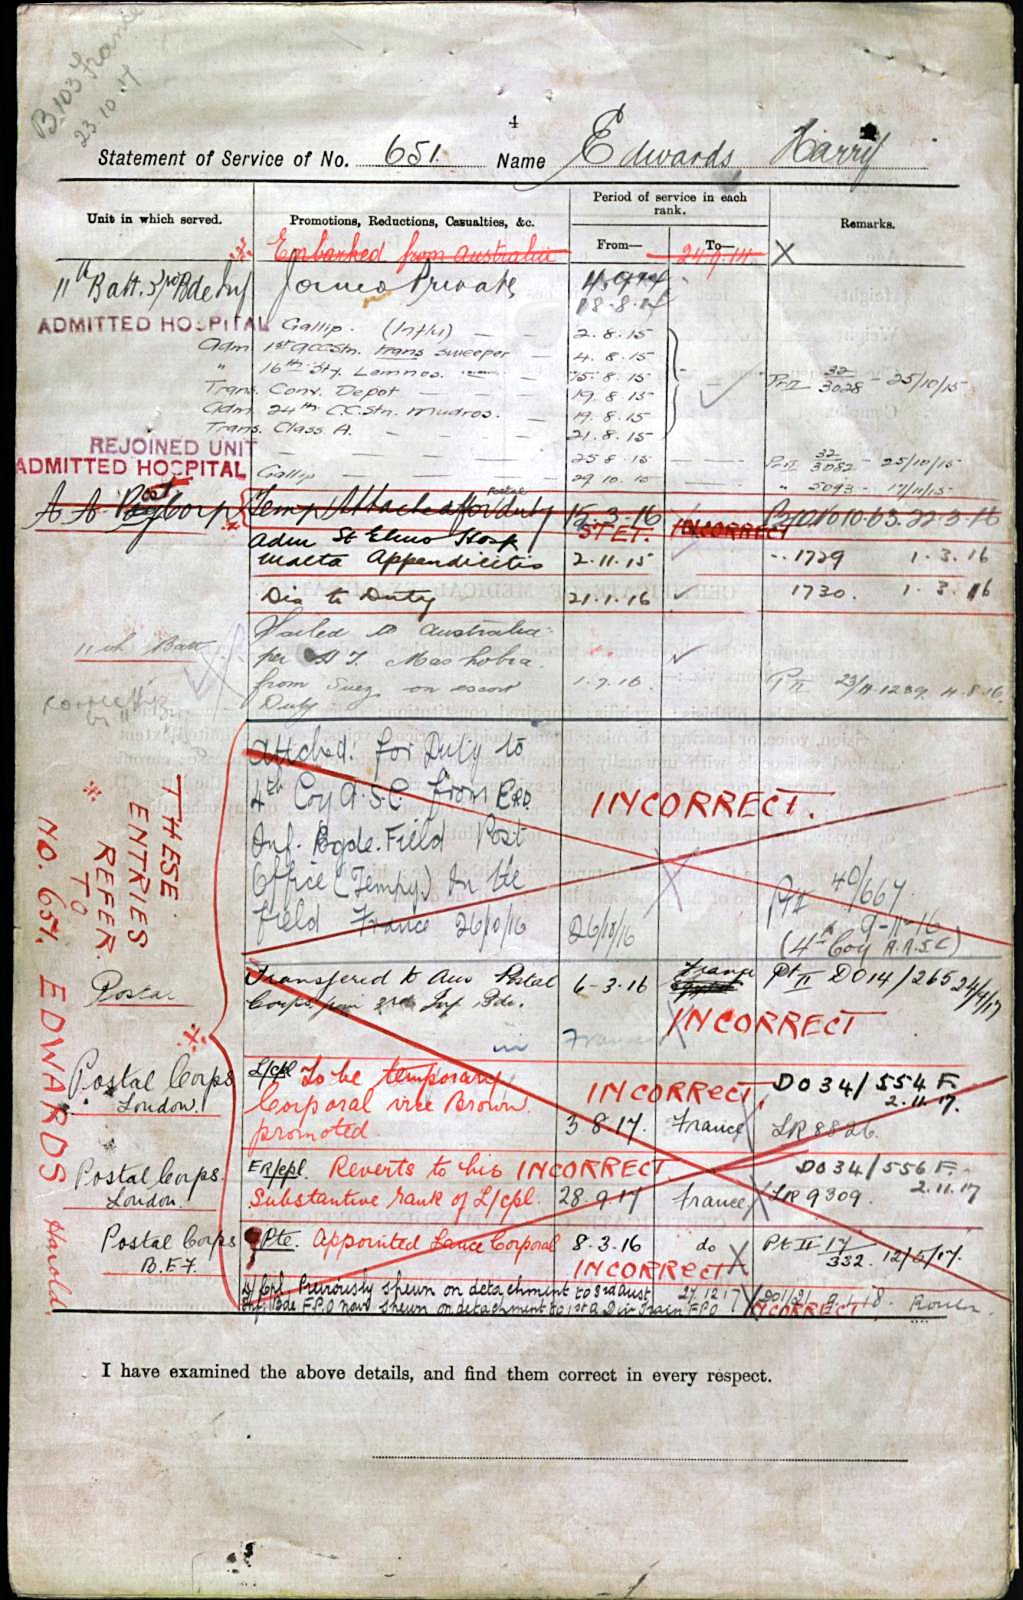 B103 France
23.10.17
4
Statement of Service of No. 651. Name Edwards Harry
Unit in which served.
Promotions, Reductions, Casualties, &c.
Period of service in each rank.
From—
To—
Remarks.
Embarked from Australia 24.9.14 X
11th Batt. 3rd Bde Inf Joined Private
18.8.14
ADMITTED HOSPITAL Gallip. (Influ) 2.8.15
Adm. 1st ACCStn. trans sweeper 4.8.15
" 16th Sty. Lemnos. 15.8.15 Pt II 32/3028 - 25/10/15
Trans. Conv. Depot 19.8.15
Adm. 24th C.C.Stn. Mudros. 19.8.15
Trans. Class A. 21.8.15
REJOINED UNIT 25.8.15 Pt II 32/3082 - 25/10/15
ADMITTED HOSPITAL Gallip 29.10.15 " 5093 - 17/11/15
A A Post Corp Temp Attached for postal duty 15.3.16
STET. INCORRECT
Adm St Elmo Hosp
Malta Appendicitis 2.11.15 1729 1.3.16
Dis to Duty 21.1.16 1730. 1.3.16
11th Batt Sailed to Australia
per H T Mashobra
from Suez on escort 1.7.16 Pt II 23/A.1239 4.8.16
Duty
Attched: for Duty to
4th Coy A.S.C from 3RD
Inf. Bgde. Field Post
Office (Tempy.) In the
Field France 26/10/16 26/10/16
INCORRECT.
Pt II 40/667
9-11-16
(4th Coy A.A.S.C)
THESE
ENTRIES
REFER
TO
NO. 651. EDWARDS Harold
Postal Transfered to Aus Postal 6-3-16 France Pt II DO14/265 24/4/17
Corps from 3rd Inf Bde.
in France
INCORRECT
Postal Corps L/cpl To be temporary INCORRECT. DO34/554 F.
London. Corporal vice Brown 2.11.17.
promoted. 3 8.17. France LR8826.
Postal Corps. ER/cpl. Reverts to his INCORRECT DO34/556 F.
London. Substantive rank of L/cpl. 28.9.17 France LR 9309. 2.11.17
Postal Corps Pte. Appointed Lance Corporal 8.3.16 do Pt II 17/332. 12/5/17.
B.E.F. INCORRECT
L/Cpl Previously shewn on detachment to 3rd Aust 27.12.17
Inf. Bde F.P.O now shewn on detachment to 1st A Div Train F.P.O INCORRECT Rouen.
I have examined the above details, and find them correct in every respect.